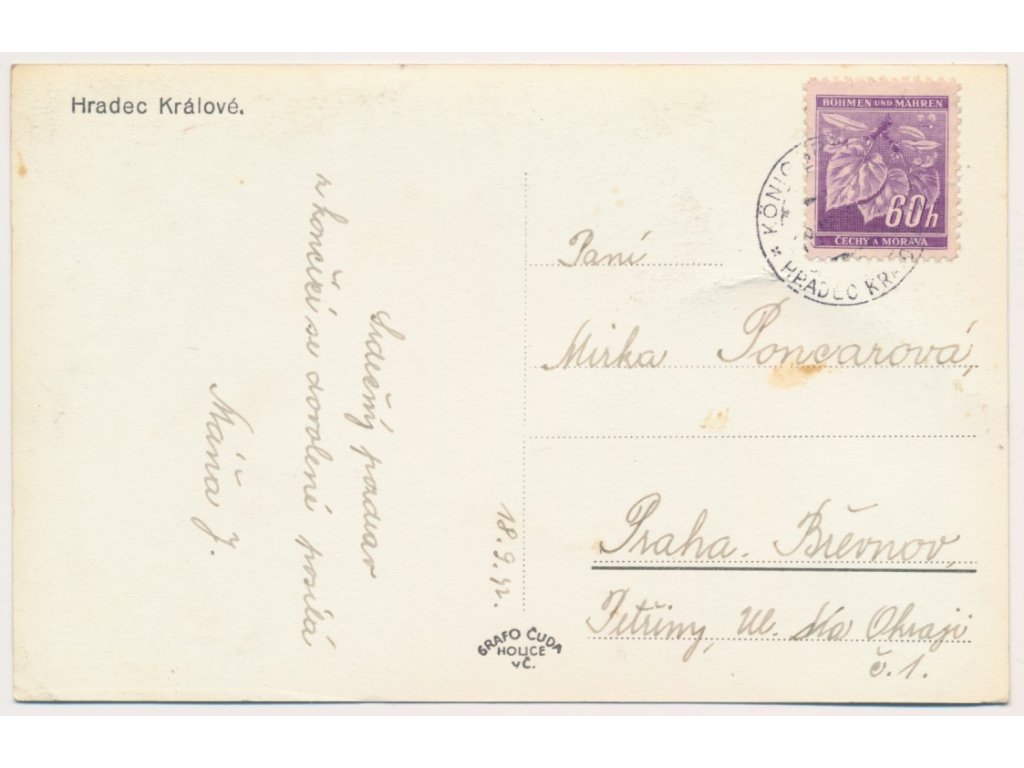 Hradec Králové.
Srdečný pozdrav
z končící se dovolené posílá
Máňa J.
18. 9. 42.
GRAFO ČUDA
HOLICE
v Č.
BÖHMEN UND MÄHREN
60h
ČECHY A MORAVA
HRADEC KRÁL
Paní
Mirka Poncarová,
Praha - Břevnov,
Petřiny, Ul. Na Okraji
č. 1.